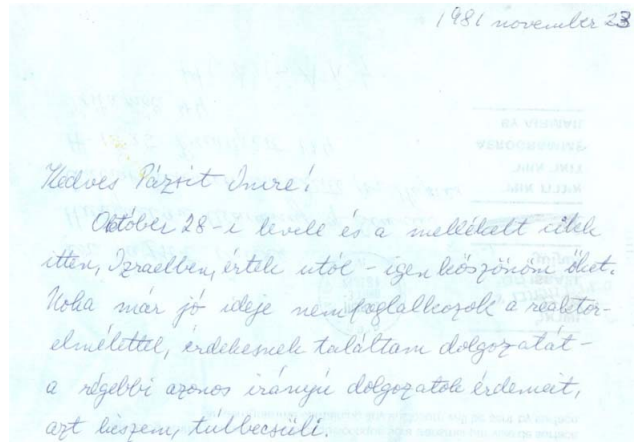 1981 november 23
Kedves Pázsit Imre!
Október 28-i levele és a mellékelt cikek
itten, Izraelben, értek utól – igen köszönöm őket.
Noha már jó ideje nem foglalkozok a reaktor-
elmélettel, érdekesnek találtam dolgozatát –
a régebbi azonos irányú dolgozatok érdemeit,
azt hiszem, túlbecsüli.